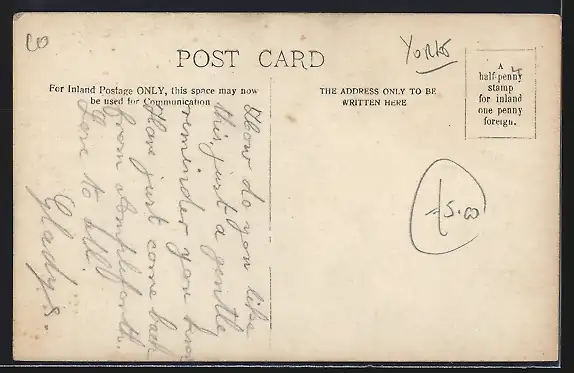 CO
POST CARD
York
For Inland Postage ONLY, this space may now
be used for Communication
THE ADDRESS ONLY TO BE
WRITTEN HERE
A
half-penny
stamp
for inland
one penny
foreign.
How do you like
this, just a gentle
reminder you know
Have just come back
from Ampleforth.
Love to All.
Gladys.
£5.00